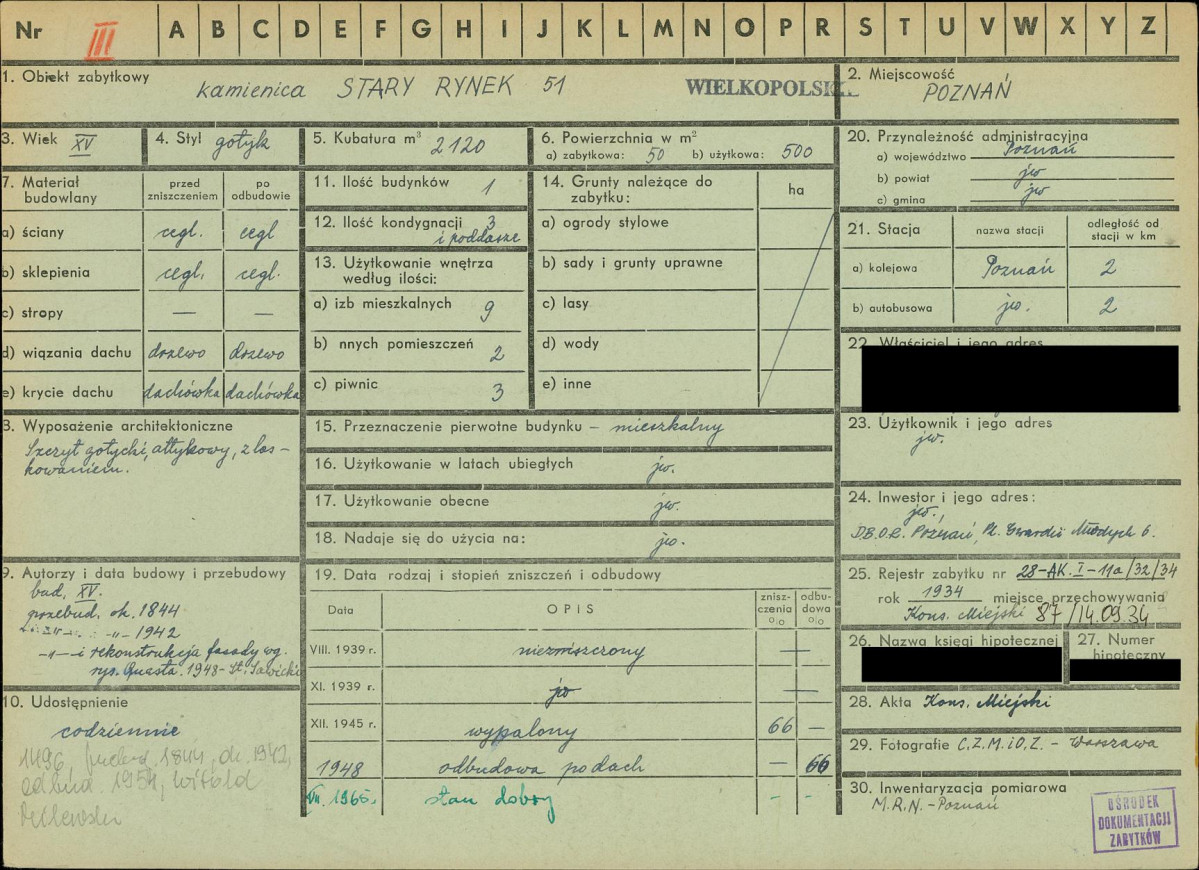 Nr III A B C D E F G H I J K L M N O P R S T U V W X Y Z
1. Obiekt zabytkowy kamienica STARY RYNEK 51
WIELKOPOLSK
2. Miejscowość
POZNAŃ
3. Wiek XV
4. Styl gotyk
5. Kubatura m³ 2120
6. Powierzchnia w m²
a) zabytkowa: 50 b) użytkowa: 500
20. Przynależność administracyjna
a) województwo Poznań
b) powiat jw
c) gmina jw
7. Materiał budowlany
przed zniszczeniem
po odbudowie
a) ściany cegl. cegl
b) sklepienia cegl. cegl.
c) stropy — —
d) wiązania dachu drzewo drzewo
e) krycie dachu dachówka dachówka
11. Ilość budynków 1
12. Ilość kondygnacji 3
i poddasze
13. Użytkowanie wnętrza
według ilości:
a) izb mieszkalnych 9
b) nnych pomieszczeń 2
c) piwnic 3
14. Grunty należące do
zabytku:
ha
a) ogrody stylowe
b) sady i grunty uprawne
c) lasy
d) wody
e) inne
21. Stacja
nazwa stacji
odległość od
stacji w km
a) kolejowa Poznań 2
b) autobusowa jw. 2
22. Właściciel i jego adres
3. Wyposażenie architektoniczne
Szczyt gotycki, attykowy, z las-
kowaniem.
15. Przeznaczenie pierwotne budynku – mieszkalny
16. Użytkowanie w latach ubiegłych jw.
17. Użytkowanie obecne jw.
18. Nadaje się do użycia na: jw.
23. Użytkownik i jego adres
jw.
24. Inwestor i jego adres:
jw.,
D.B.O.R. Poznań, Pl. Gwardii Młodych 6.
9. Autorzy i data budowy i przebudowy
bud. XV.
przebud. ok. 1844
-"- 1942
-"- i rekonstrukcja fasady wg.
rys. Quasta. 1948 - St. Sawicki
19. Data rodzaj i stopień zniszczeń i odbudowy
Data
OPIS
znisz-
czenia
%
odbu-
dowa
%
VIII. 1939 r. niezniszczony —
XI. 1939 r. jw —
XII. 1945 r. wypalony 66 —
1948 odbudowa po dach — 66
VII. 1965. stan dobry - -
25. Rejestr zabytku nr 28-AK.I-11a/32/34
rok 1934 miejsce przechowywania
Kons. Miejski 87/14.09.34
26. Nazwa księgi hipotecznej
27. Numer
hipoteczny
10. Udostępnienie
codziennie
1496, 1844, ok. 1942,
odbud. 1954, Witold
28. Akta Kons. Miejski
29. Fotografie C.Z.M.iO.Z. - Warszawa
30. Inwentaryzacja pomiarowa
M.R.N. - Poznań
OŚRODEK
DOKUMENTACJI
ZABYTKÓW